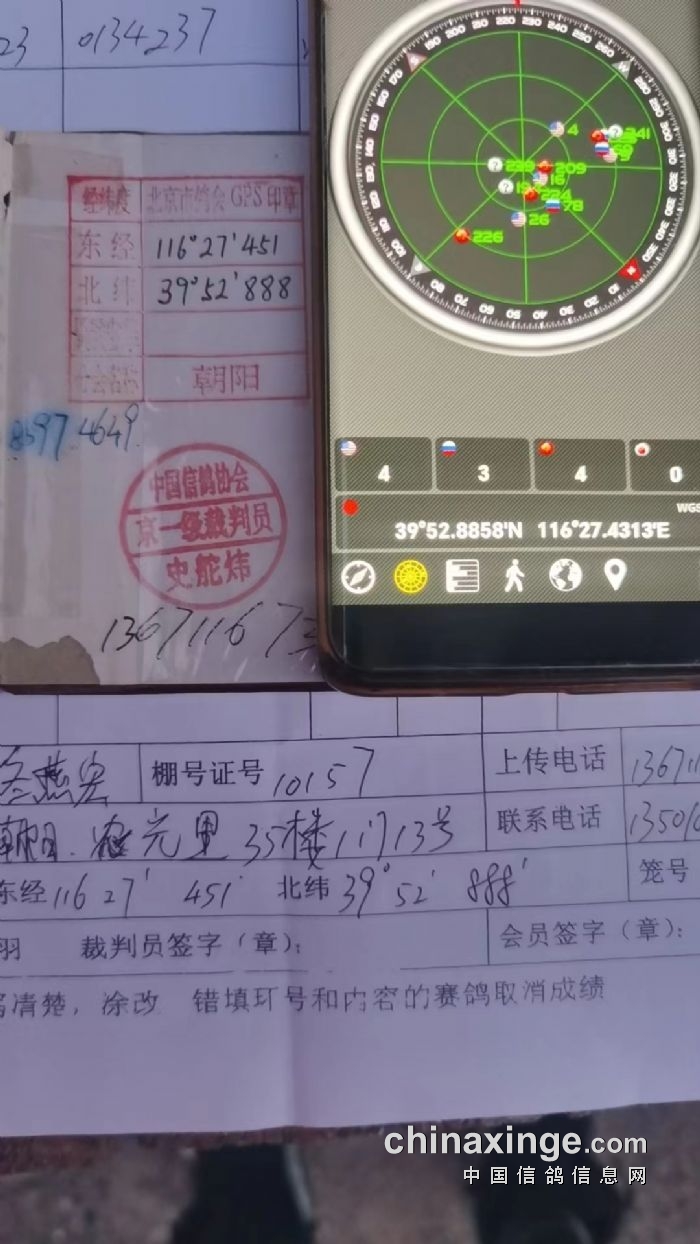 23 0134237
经纬度 北京市鸽会GPS印章
东经 116°27'451
北纬 39°52'888
朝阳
8597 4649
中国信鸽协会
京一级裁判员
史舵炜
136711673
190 200 210 220 230 240 250 260
4
341
209
16
224
78
26
226
4 3 4 0
WGS
39°52.8858'N 116°27.4313'E
棚号证号 10157 上传电话 13671
35楼1门13号 联系电话 13501
东经116 27' 451 北纬39° 52' 888' 笼号
羽 裁判员签字(章): 会员签字(章):
写清楚,涂改 错填环号和内容的赛鸽取消成绩
chinaxinge.com
中国信鸽信息网